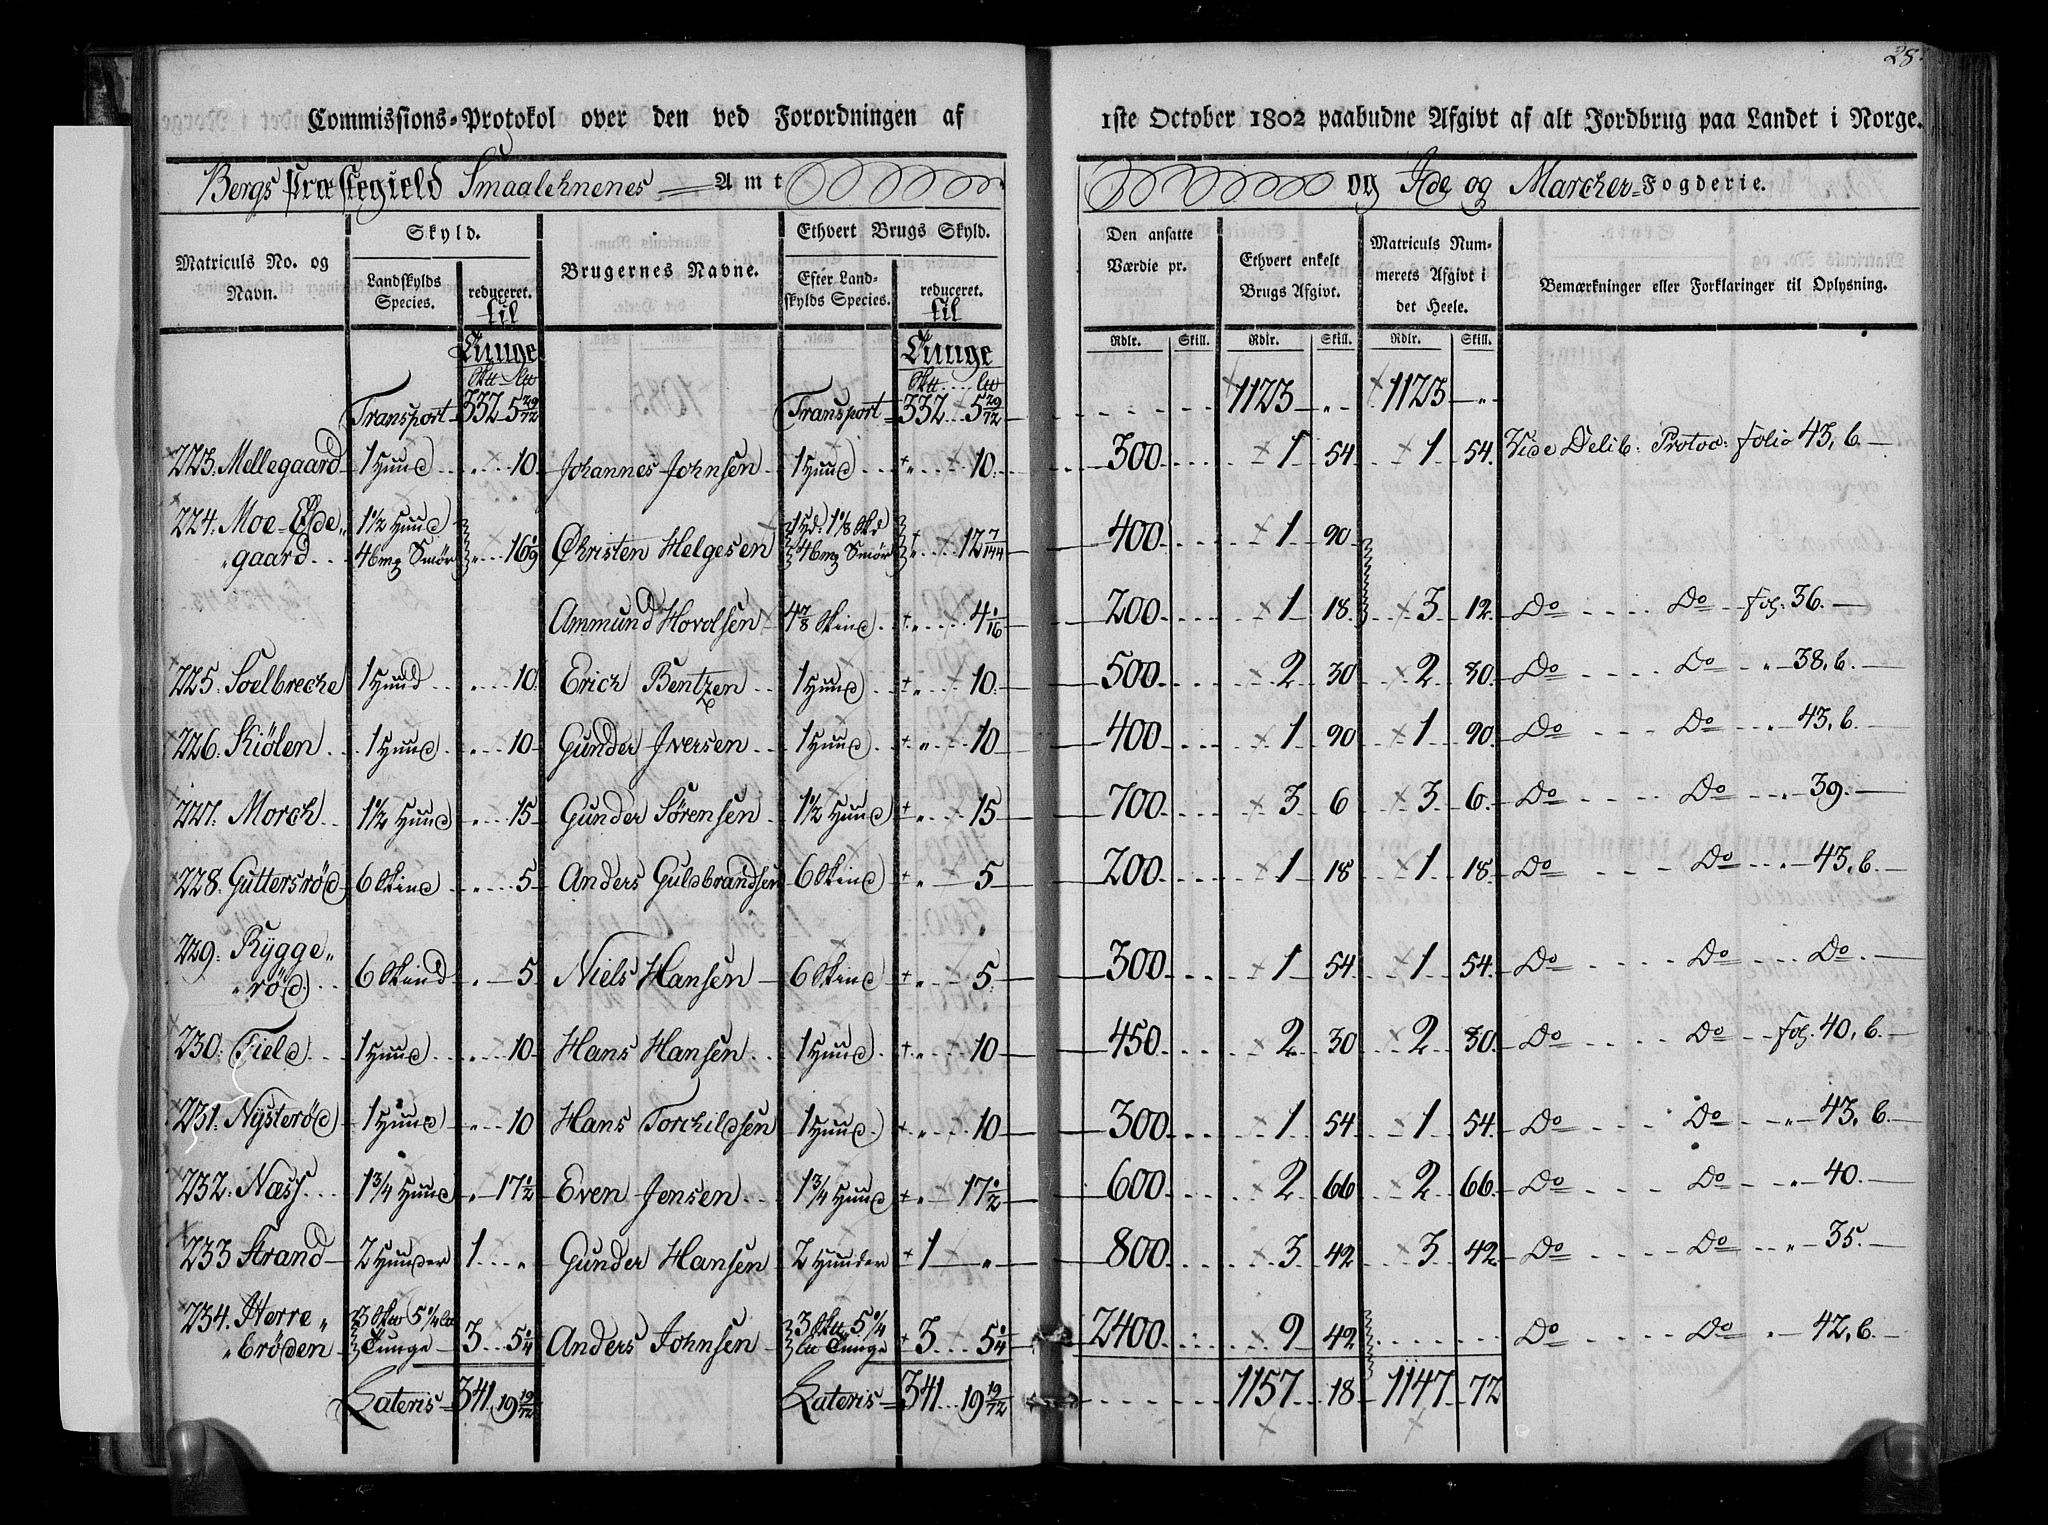 28.
Commissions-Protokol over den ved Forordningen af 1ste October 1802 paabudne Afgivt af alt Jordbrug paa Landet i Norge.
Bergs Præstegield Smaalehnenes Amt og Ide og Marcker-Fogderie.
Matriculs No. og Navn.
Skyld.
Landskylds Species.
reduceret. til
Brugernes Navne.
Ethvert Brugs Skyld.
Efter Landskylds Species.
reduceret. til
Den ansatte Værdie pr.
Ethvert enkelt Brugs Afgivt.
Matriculs Nummerets Afgivt i det Heele.
Bemærkninger eller Forklaringer til Oplysning.
Tunge Tunge Rdlr. Skill. Rdlr. Skill. Rdlr. Skill.
Transport 332 5 29/72 Transport 332 5 29/72 1123 „ 1123 „
223. Mellegaard 1 Huud „ 10 Johannes Johnsen 1 Huud „ 10. 300 1 54 1 54. Vide Delib: Protoc: folio 43, b.
224. Moe-Øde„ 1 1/2 Huud 1 Hd. 1 1/8 Skd
„gaard 46 mg Smör „ 16 1/9 Christen Helgesen 46 mg Smör „ 12 7/144 400 1 90
Ammund Hovolsen 4 7/8 Skind „ 4 1/16 200 1 18. 3 12. Do Do fol. 36.
225. Soelbrecke 1 Hund „ 10. Erich Bentzen 1 Huud „ 10. 500 2 30 2 30. Do Do „ 38, b.
226. Kiölen 1 Huud „ 10 Gunder Iversen 1 Huud „ 10 400 1 90 1 90. Do Do „ 43, b.
227. Morch 1 1/2 Huud „ 15 Gunder Sörensen 1 1/2 Huud „ 15 700 3 6 3 6. Do Do „ 39.
228. Guttersröd 6 Skind „ 5 Anders Gulbrandsen 6 Skind „ 5 200 1 18 1 18. Do Do „ 43, b.
229. Rygge„
„röd. 6 Skind „ 5. Niels Hansen 6 Skind „ 5. 300 1 54 1 54. Do Do Do.
230. Field 1 Huud „ 10 Hans Hansen 1 Huud „ 10 450 2 30 2 30. Do Do fol. 40, b.
231. Nysteröd 1 Huud „ 10 Hans Torchildsen 1 Huud „ 10 300 1 54 1 54. Do Do „ 43, b.
232. Næss 1 3/4 Huud „ 17 1/2 Even Jensen 1 3/4 Huud „ 17 1/2 600 2 66 2 66. Do Do „ 40.
233 Strand 2 Huuder 1 „ Gunder Hansen 2 Huuder 1 „ 800 3 42 3 42. Do Do „ 35.
234. Herre„ 3 5 1/4 3 5 1/4
„bröden Tunge 3 5 1/4 Anders Johnsen Tunge 3 5 1/4 2400 9 42 Do Do „ 42, b.
Lateris 341. 19 19/72 Lateris 341 19 19/72 1157 18 1147 72